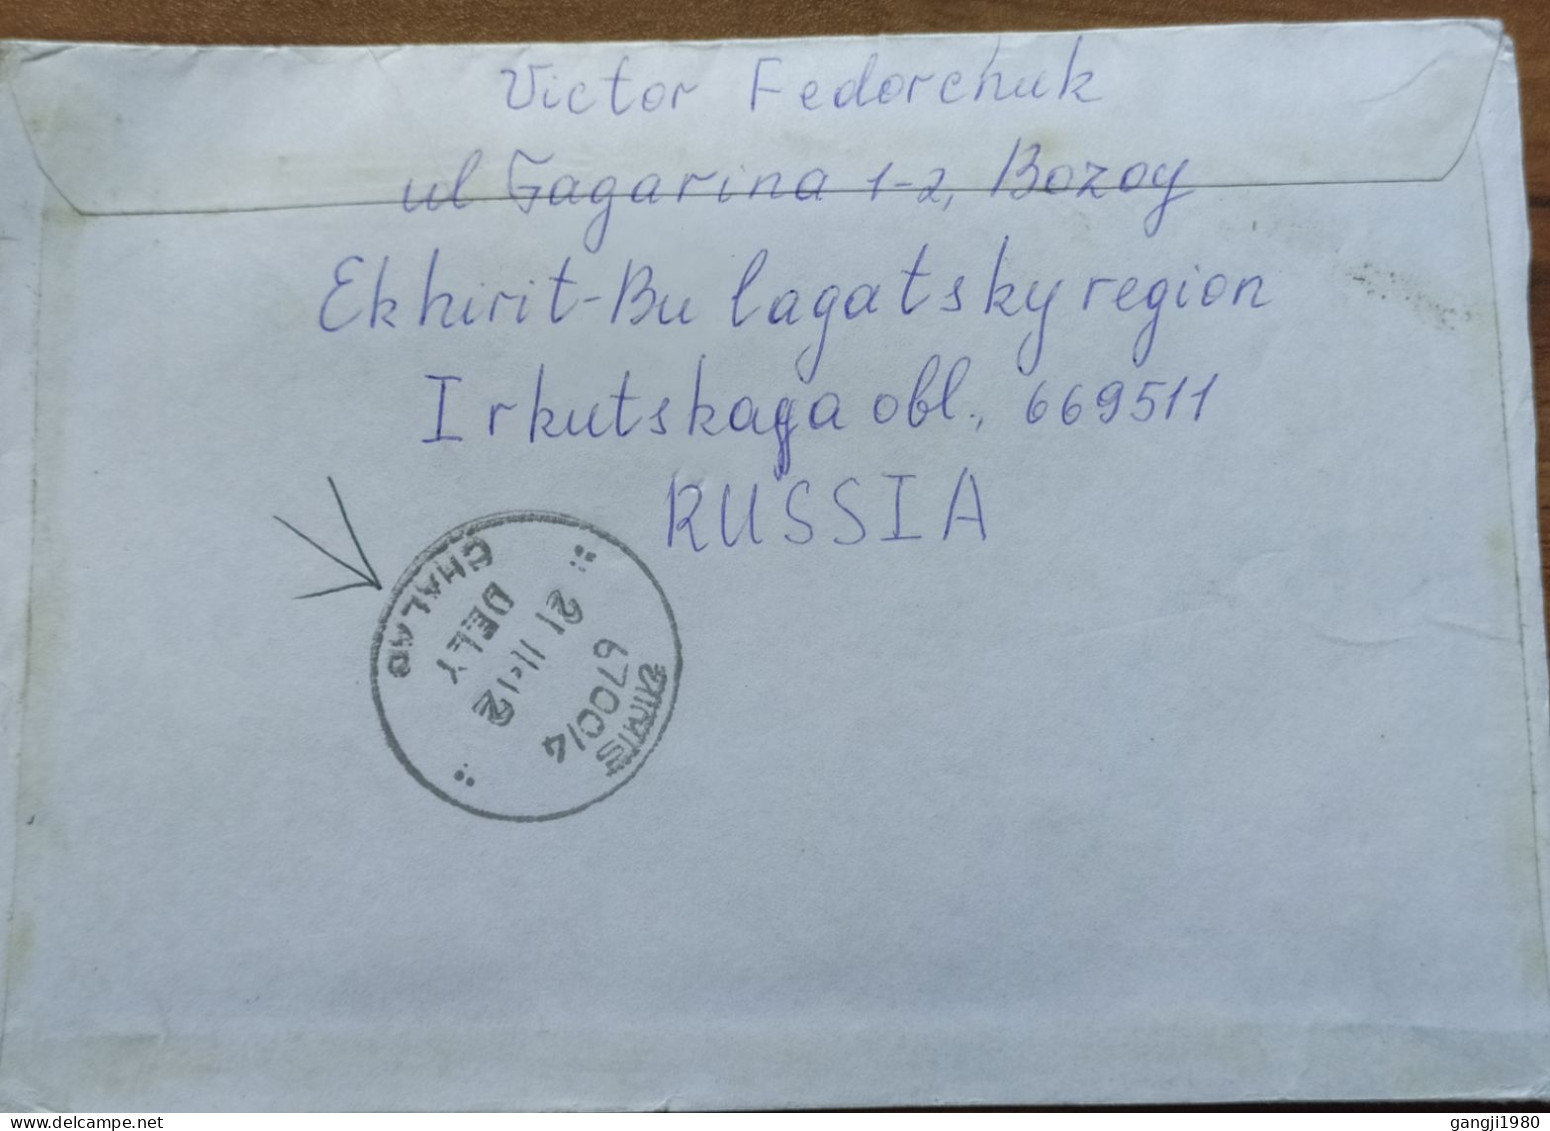 Victor Fedorchuk
ul Gagarina 1-2, Bozoy
Ekhirit-Bulagatsky region
Irkutskaya obl., 669511
RUSSIA
CHALAD
DELY
21 11 12
670014
gangji1980